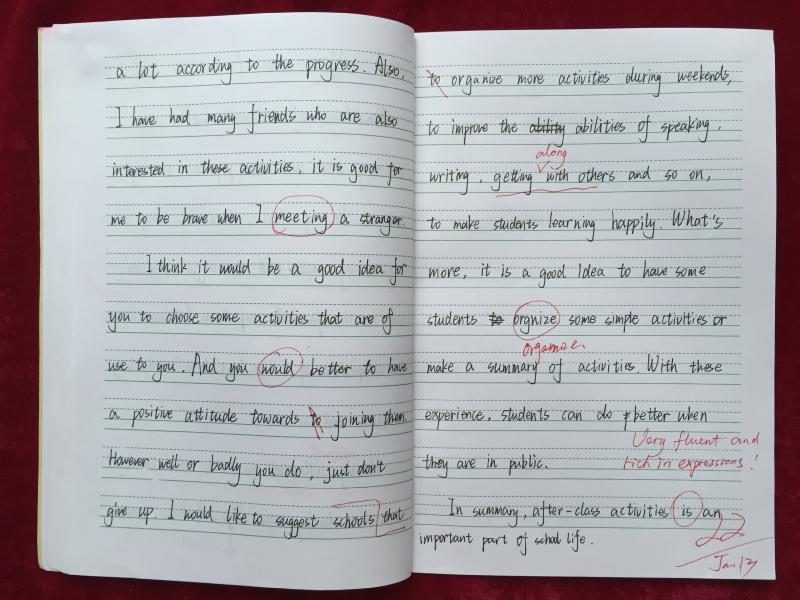 a lot according to the progress. Also,
I have had many friends who are also
interested in these activities, it is good for
me to be brave when I meeting a stranger.
I think it would be a good idea for
you to choose some activities that are of
use to you. And you would better to have
a positive attitude towards to joining them.
However well or badly you do, just don't
give up. I would like to suggest schools that
to organize more activities during weekends,
to improve the ability abilities of speaking,
along
writing, getting with others and so on,
to make students learning happily. What's
more, it is a good Idea to have some
students to orgnize some simple activities or
organize.
make a summary of activities. With these
experience, students can do better when
Very fluent and
they are in public.
rich in expressions!
In summary, after-class activities is an
22
important part of school life.
Jan 13